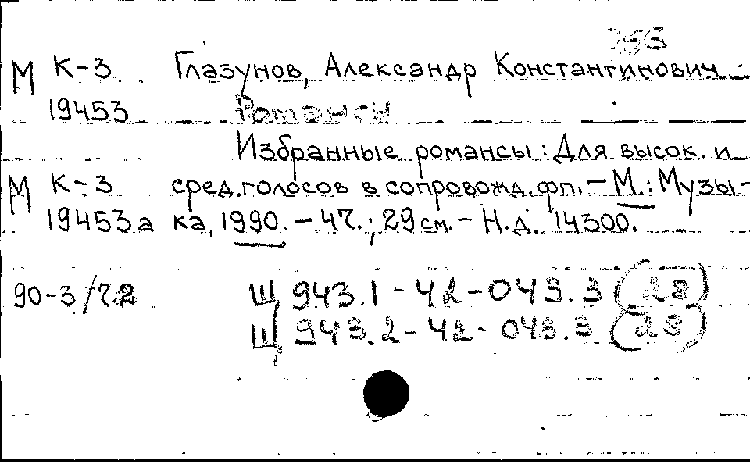 М К-3 Глазунов, Александр Константинович
19453 Романсы
Избранные романсы: Для высок. и
М К-3 сред. голосов в сопровожд. фп. – М.: Музы-
19453а ка, 1990. – 47.; 29 см. – Н.д. 14300.
90-3/
Щ 943.1-42-043.3 (28)
Щ 943.2-42-043.3 (28)